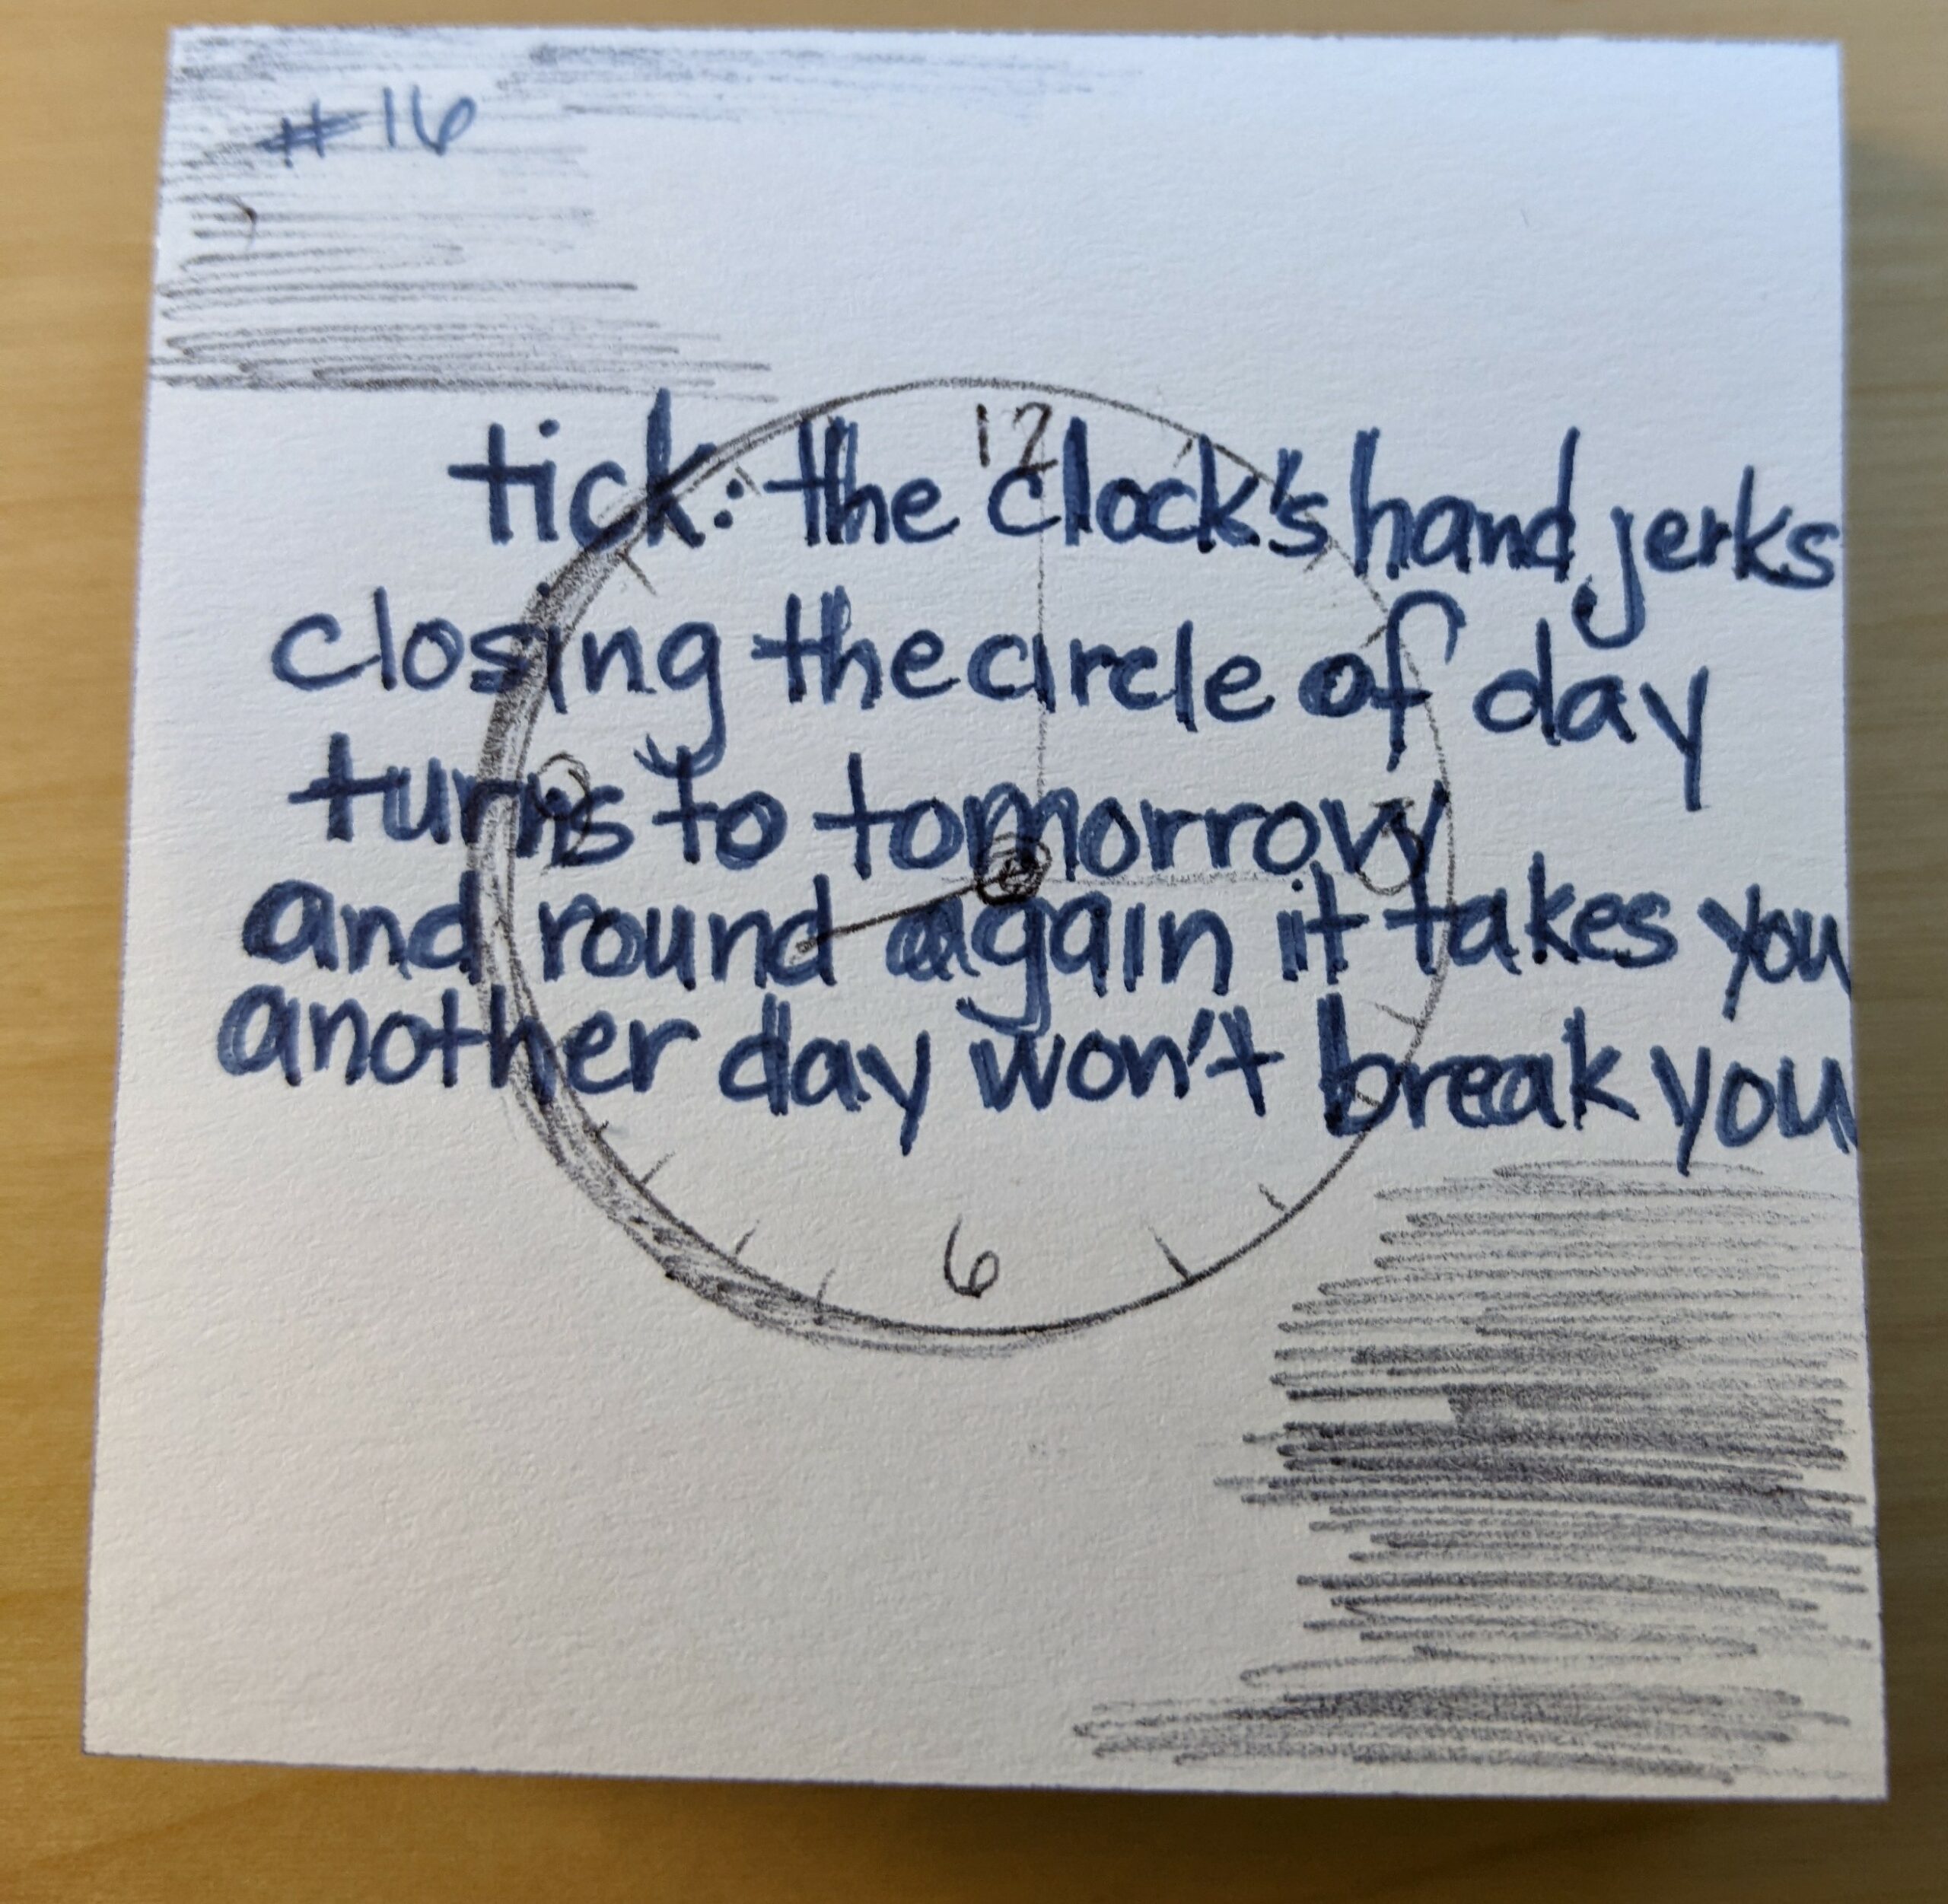 #16
12
tick: the clock's hand jerks
closing the circle of day
9
turns to tomorrow
3
and round again it takes you
another day won't break you
6